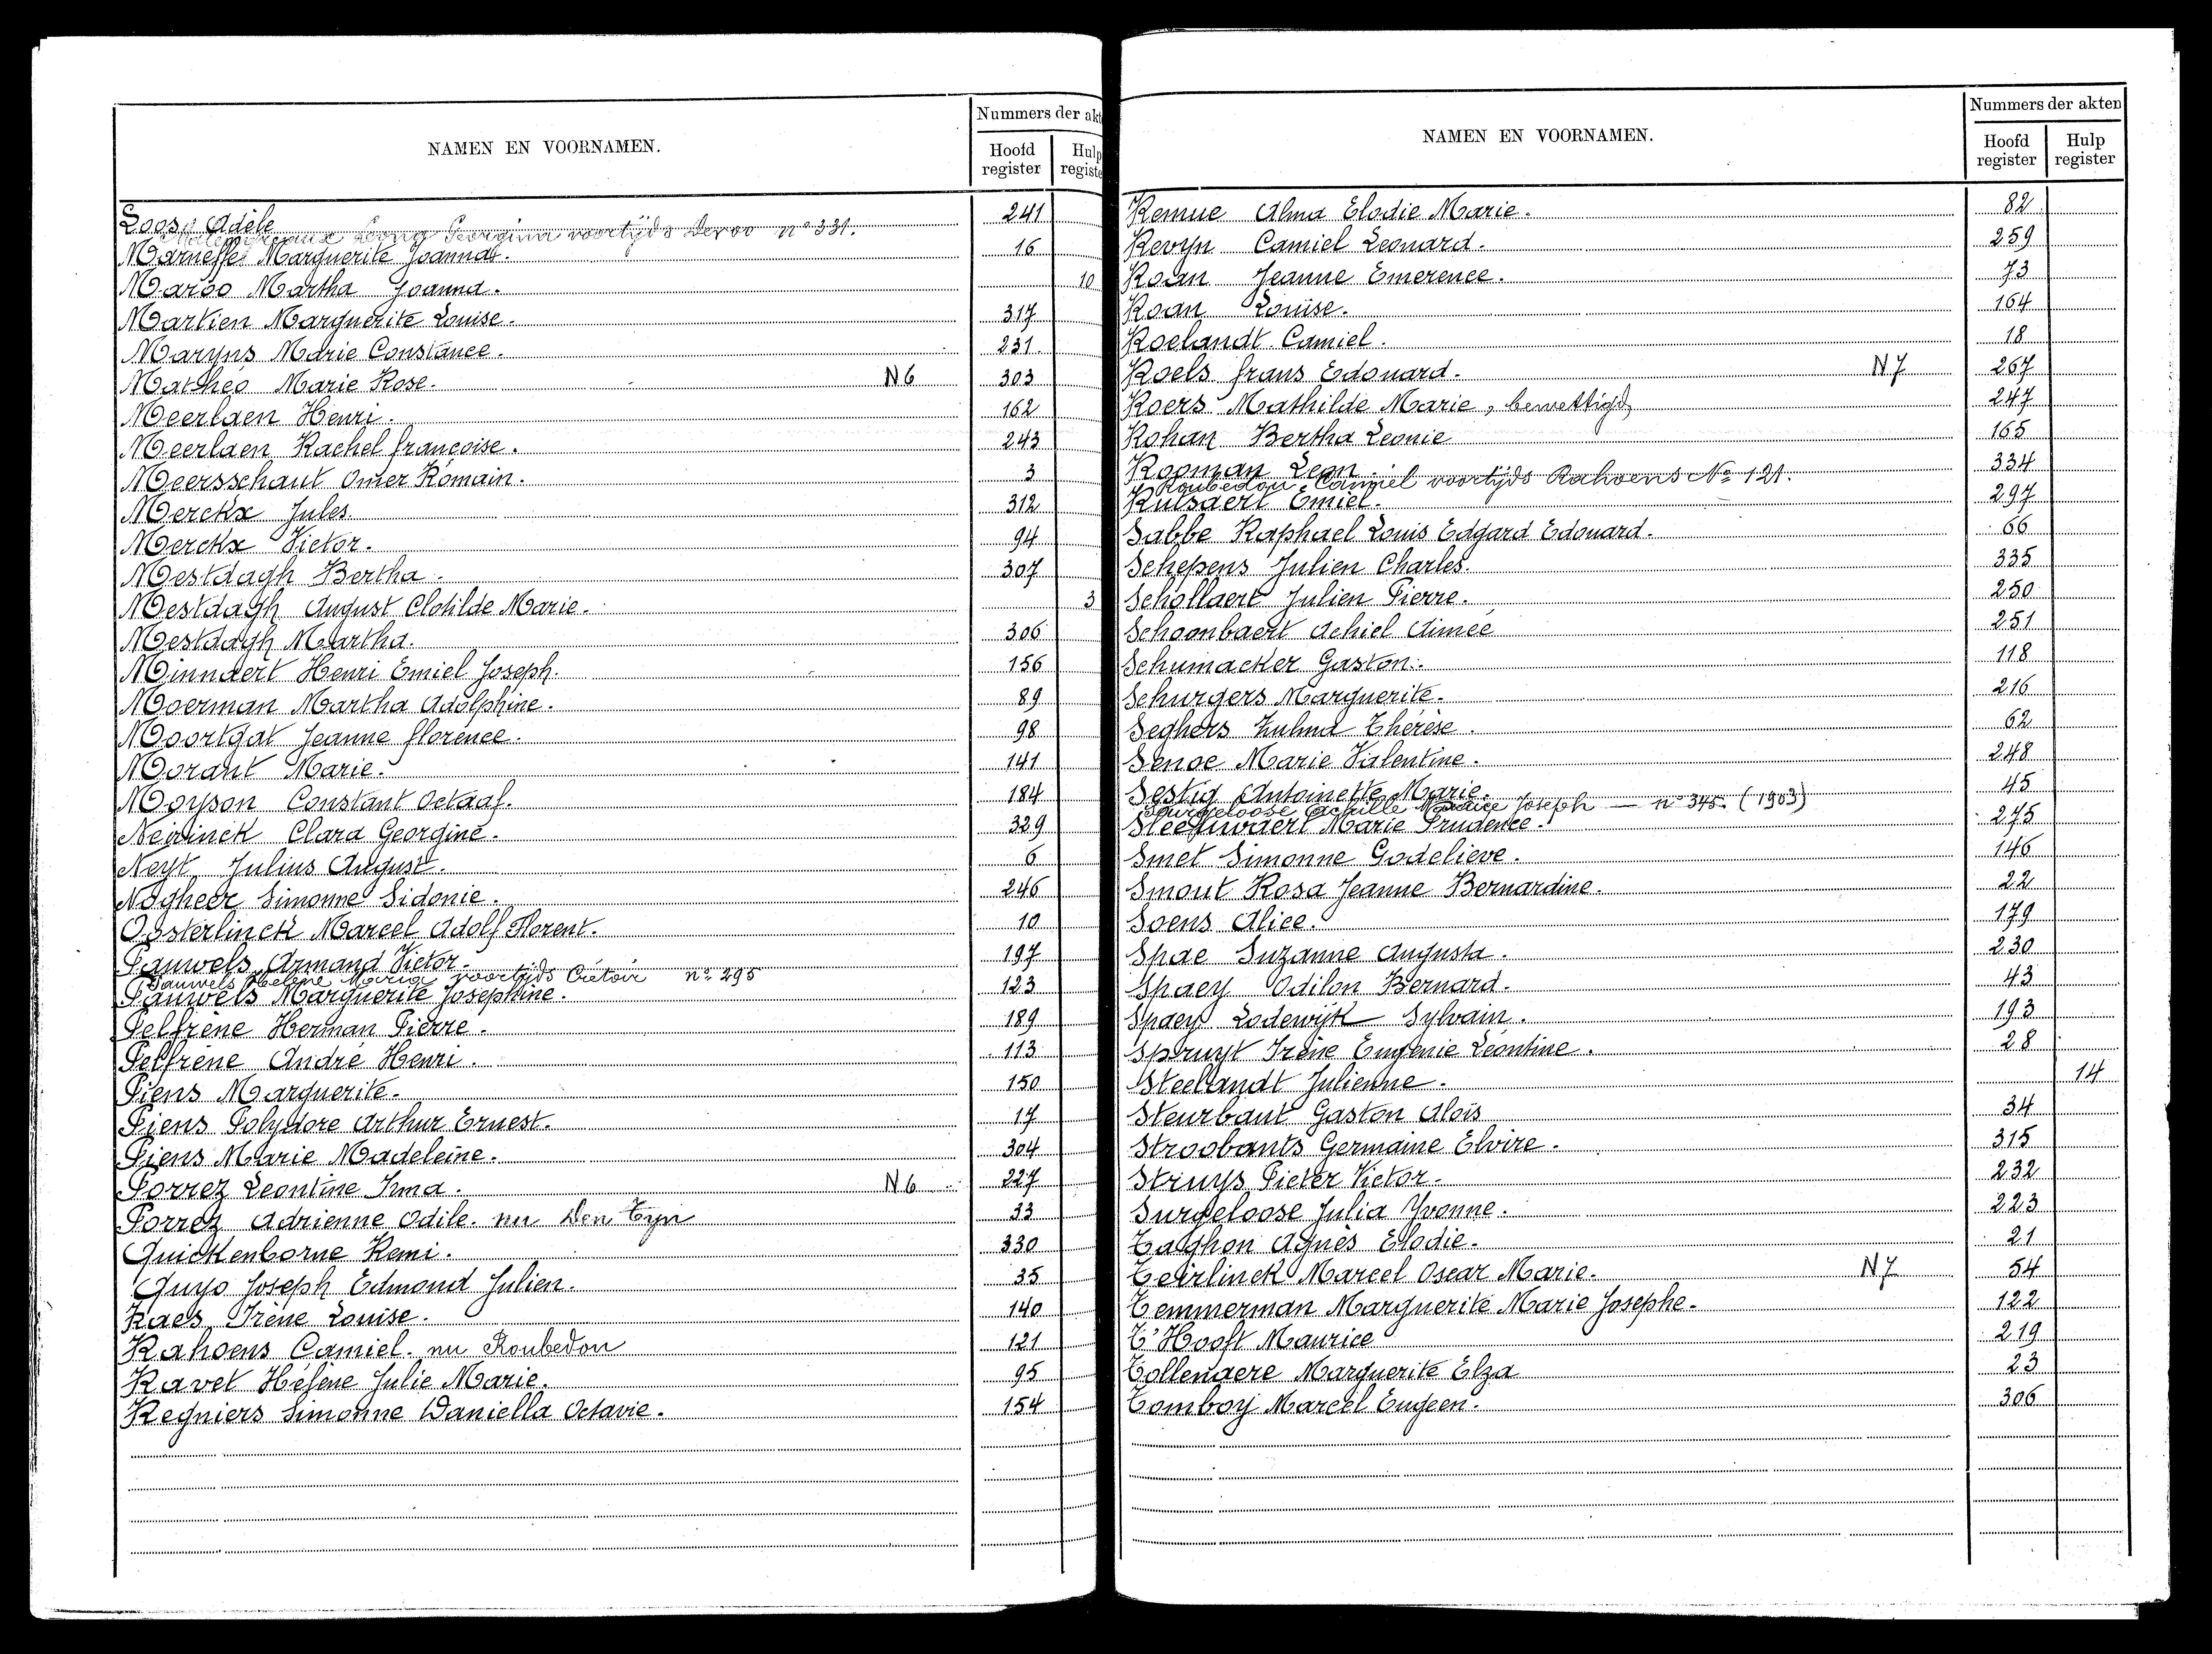 Nummers der akt
NAMEN EN VOORNAMEN.
Hoofd register Hulp registe
Loos, Adèle 241
Leona Georgina voortijds Devos n° 331.
Marneffe Marguerite Joanna. 16
Maroo Martha Joanna. 10
Martien Marguerite Louise. 317
Maryns Marie Constance. 231
Mathéo Marie Rose. N6 303
Meerlaen Henri. 162
Meerlaen Rachel françoise. 243
Meersschaut Omer Romain. 3
Merckx Jules 312
Merckx Victor. 94
Mestdagh Bertha. 307
Mestdagh August Clotilde Marie. 3
Mestdagh Martha. 306
Minnaert Henri Emiel Joseph. 156
Moerman Martha Adolphine. 89
Moortgat Jeanne florence. 98
Morant Marie. 141
Moyson Constant Octaaf. 184
Neirinck Clara Georgine. 329
Neyt Julius August. 6
Nagheer Simonne Sidonie. 246
Oosterlinck Marcel Adolf Florent. 10
Pauwels Armand Victor. 197
Pauwels Helène Maria voortijds Crétoir n° 295
Pauwels Marguerite Josephine. 123
Pelfrène Herman Pierre. 189
Pelfrène André Henri. 113
Piens Marguerite. 150
Piens Polydore Arthur Ernest. 17
Piens Marie Madeleine. 304
Porrez Leontine Irma. N6 227
Porrez Adrienne Odile. nu Den Tyn 33
Quickenborne Remi. 330
Quyo Joseph Edmond Julien. 35
Raes Irène Louise. 140
Rahoens Camiel. nu Roubedou 121
Ravet Hélène Julie Marie. 95
Regniers Simonne Daniella Octavie. 154
Nummers der akten
NAMEN EN VOORNAMEN.
Hoofd register Hulp register
Remue Alma Elodie Marie. 82
Revyn Camiel Leonard. 259
Roan Jeanne Emerence. 73
Roan Louise. 164
Roelandt Camiel. 18
Roels frans Edouard. N7 267
Roers Mathilde Marie, bewettigd 247
Rohan Bertha Leonie 165
Rooman Leon. 334
Roubedou Camiel voortijds Rahoens N° 121.
Rulsaert Emiel. 297
Sabbe Raphael Louis Edgard Edouard. 66
Schepens Julien Charles. 335
Schollaert Julien Pierre. 250
Schoonbaert Achiel Aimée 251
Schumacker Gaston. 118
Schurgers Marguerite. 216
Seghers Zulma Thérèse. 62
Senoe Marie Valentine. 248
Sestig Antoinette Marie. 45
Surgeloose Achille Maurice Joseph — n° 345. (1903)
Marie Prudence. 275
Smet Simonne Godelieve. 146
Smout Rosa Jeanne Bernardine. 22
Soens Alice. 179
Spae Suzanne Augusta. 230
Spaey Odilon Bernard. 43
Spaey Lodewijk Sylvain. 193
Spruyt Irène Eugenie Léontine. 28
Steelandt Julienne. 14
Steurbaut Gaston Aloïs 34
Stroobants Germaine Elvire. 315
Struys Pieter Victor. 232
Surgeloose Julia Yvonne. 223
Taghon Agnès Elodie. 21
Teirlinck Marcel Oscar Marie. N7 54
Temmerman Marguerite Marie Josephe. 122
T'Hooft Maurice 219
Tollenaere Marguerite Elza 23
Tomboy Marcel Eugeen. 306